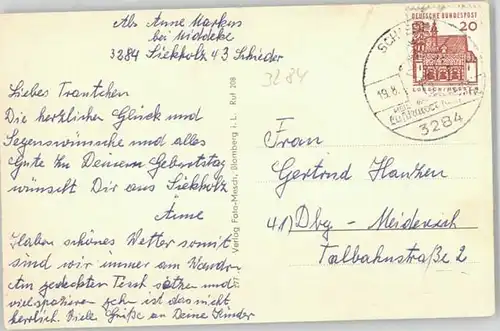 Abs. Anne Markus
bei Middeke
3284 Siekholz 43 Schieder
3284
Liebes Trautchen
Die herzlichen Glück und
Segenswünsche und alles
Gute zu Deinem Geburtstag
wünscht Dir aus Siekholz
Änne
Haben schönes Wetter somit
sind wir immer am Wandern
Am gedeckten Tisch sitzen und
viel spazieren gehn ist das nicht
herrlich. Viele Grüße an Deine Kinder
Verlag Foto-Mosch, Blomberg i. L. Ruf 208
DEUTSCHE BUNDESPOST
20
19.8.
3284
Frau
Gertrud Hanzen
41) Dbg. - Meiderich
Talbahnstraße 2